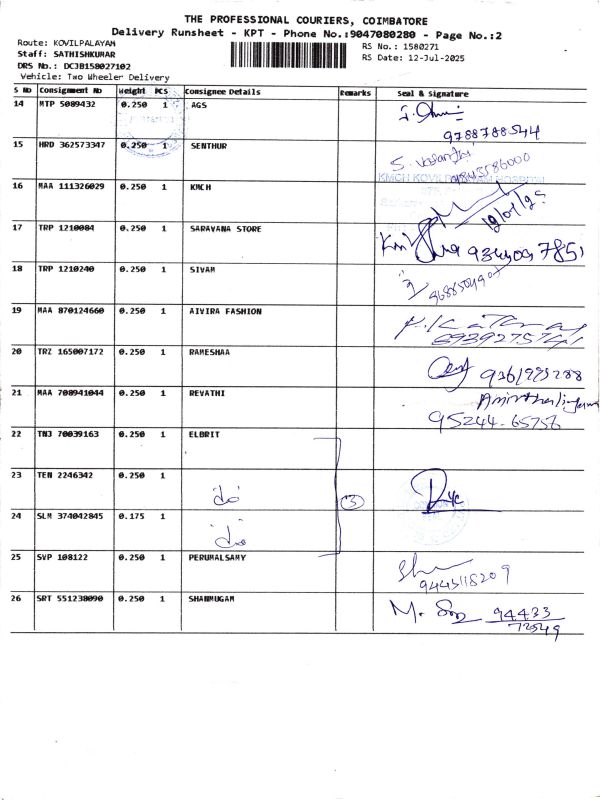 THE PROFESSIONAL COURIERS, COIMBATORE
Delivery Runsheet - KPT - Phone No.:9047080280 - Page No.:2
Route: KOVILPALAYAM
Staff: SATHISHKUMAR
DRS No.: DCJB158027102
Vehicle: Two Wheeler Delivery
RS No.: 1580271
RS Date: 12-Jul-2025
S No Consignment No Weight PCS Consignee Details Remarks Seal & Signature
14 MTP 5089432 0.250 1 AGS
9788788544
15 HRD 362573347 0.250 1 SENTHUR
9843586000
KMCH KOVILPALAYAM HOSPITAL
16 MAA 111326029 0.250 1 KMCH
17 TRP 1210084 0.250 1 SARAVANA STORE
18 TRP 1210240 0.250 1 SIVAM
19 MAA 870124660 0.250 1 AIVIRA FASHION
20 TRZ 165007172 0.250 1 RAMESHAA
21 MAA 708941044 0.250 1 REVATHI
95244-65756
22 TNJ 70039163 0.250 1 ELBRIT
23 TEN 2246342 0.250 1 do
3
24 SLM 374042845 0.175 1 do
25 SVP 108122 0.250 1 PERUMALSAMY
9445118209
26 SRT 551230090 0.250 1 SHANMUGAM
94433
72549